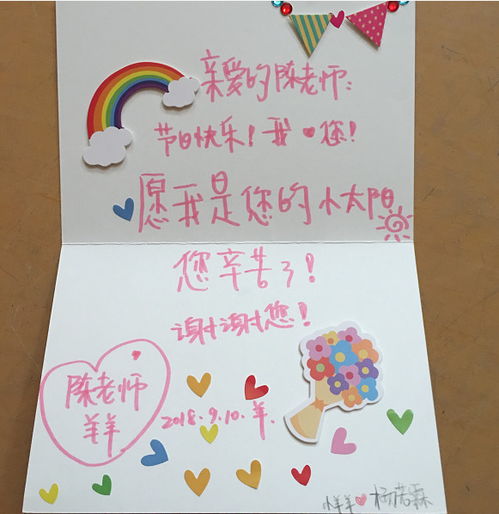 亲爱的陈老师:
节日快乐!我♥您!
愿我是您的小太阳
您辛苦了!
谢谢您!
陈老师
羊羊
2018.9.10.羊.
羊羊♥杨若霖